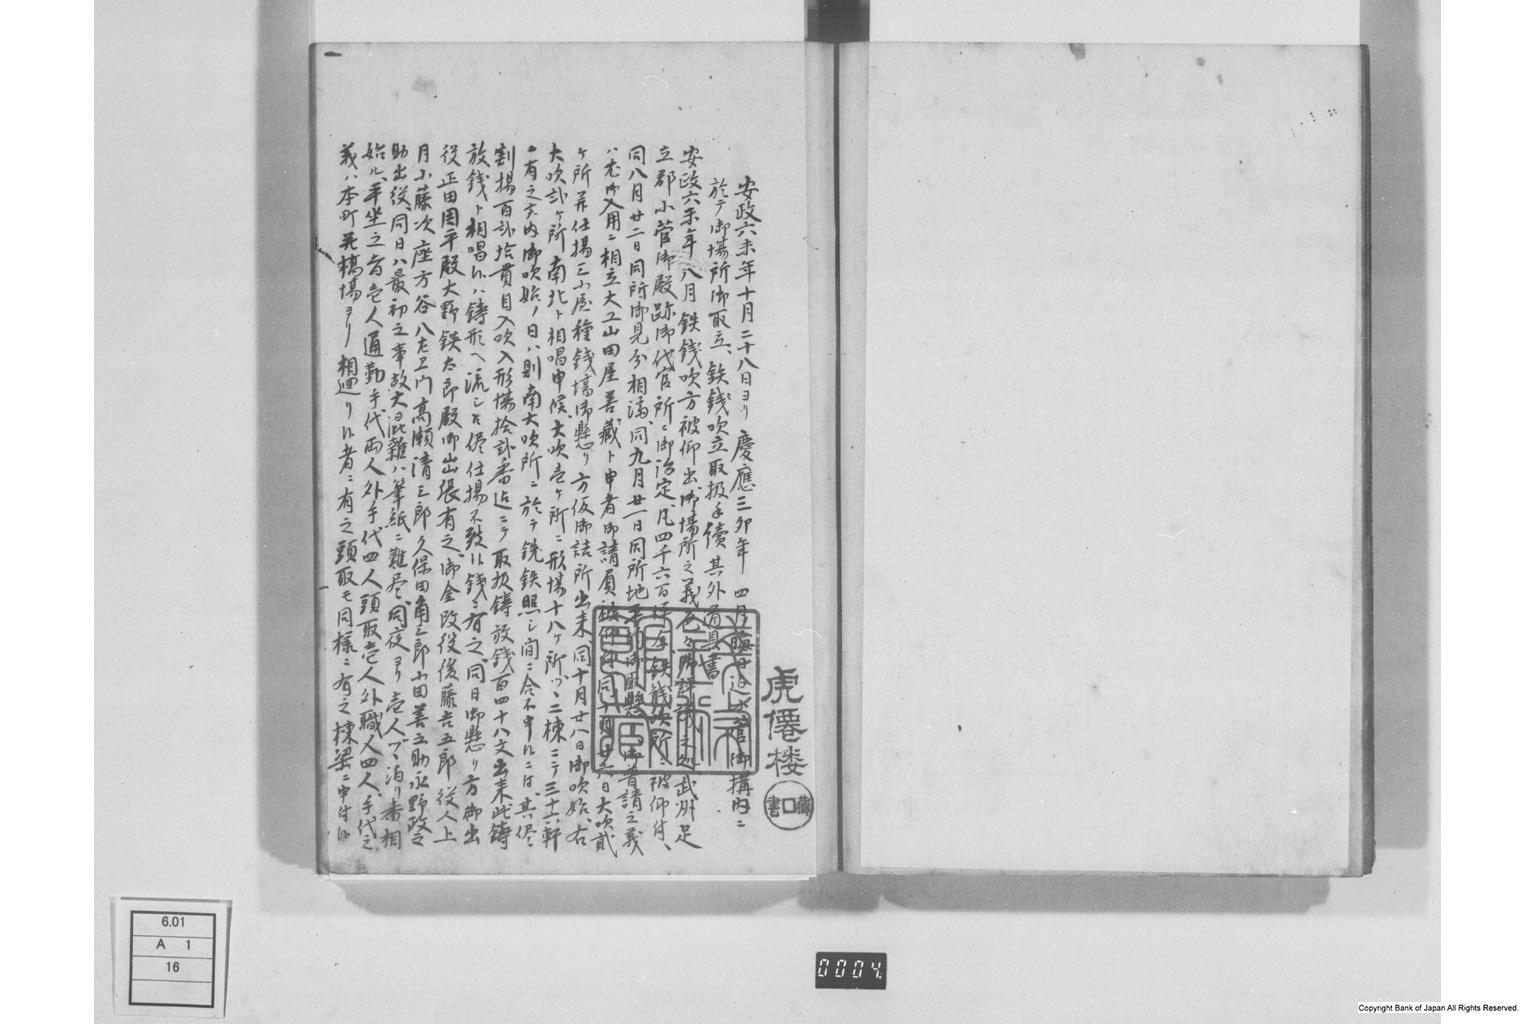 安政六未年十月二十八日ヨリ慶應三卯年四月晦日迄小菅御構内ニ
於テ御場所御取立、鉄銭吹立取扱手續其外道具書
安政六未年八月鉄銭吹方被仰出御場所之義色々御評議之処武州足
立郡小菅御殿跡御代官所ニ御治定、凡四千六百坪余鉄銭吹所ニ被仰付、
同八月廿二日同所御見分相済、同九月廿一日同所地所御取懸御普請之義
ハ 御入用ニ相立大工山田屋善蔵ト申者御請負被仰付同十月廿六日大吹貳
ヶ所并仕揚三小屋種銭場御懸り方仮御詰所出来、同十月廿八日御吹始、右
大吹貳ヶ所南北ト相唱申候、大吹壱ヶ所ニ形場十八ヶ所ツヽ二棟ニテ三十六軒
ニ有之 内御吹始ノ日ハ則南大吹所ニ於テ銑鉄 間ニ合不申 ハ其侭
割揚百貳拾貫目入吹入形場拾貳番迄ニテ取扱鋳放銭百四十八文出来此鋳
放銭ト相唱 ハ鋳形ヘ流シ 侭仕揚不致 銭ニ有之、同日御懸り方御出
役正田困平殿大野鉄太郎殿御出張有之、御金改役後藤吉五郎役人上
月小藤次座方谷八左卫門高瀬清三郎久保田角三郎小田善之助永野政之
助出役、同日ハ最初之事故大混雑ハ筆紙ニ難尽、同夜ヨリ壱人ツヽ泊り番相
始ル、平坐之者壱人通勤手代両人外手代四人頭取壱人外職人四人、手代之
義ハ本町 場ヨリ相廻リ 者ニ有之頭取モ同様ニ有之棟梁ニ申付
虎僊楼
藏書
6.01
A 1
16
0004.
Copyright Bank of Japan All Rights Reserved.